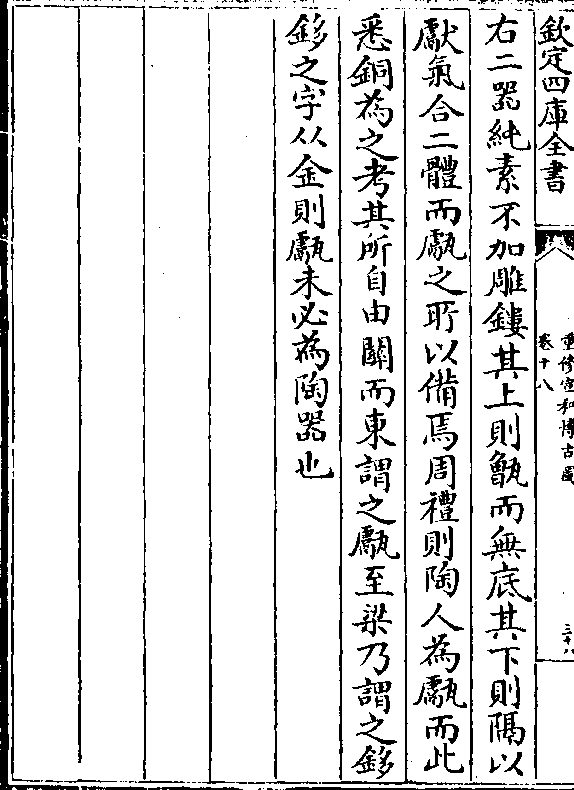 欽定四庫全書
重修宣和博古圖
卷十八
三十八
右二器純素不加雕鏤其上則甑而無底其下則隔以
獻氣合二體而甗之所以備焉周禮則陶人為甗而此
悉銅為之考其所自由關而東謂之甗至梁乃謂之鉹
鉹之字从金則甗未必為陶器也